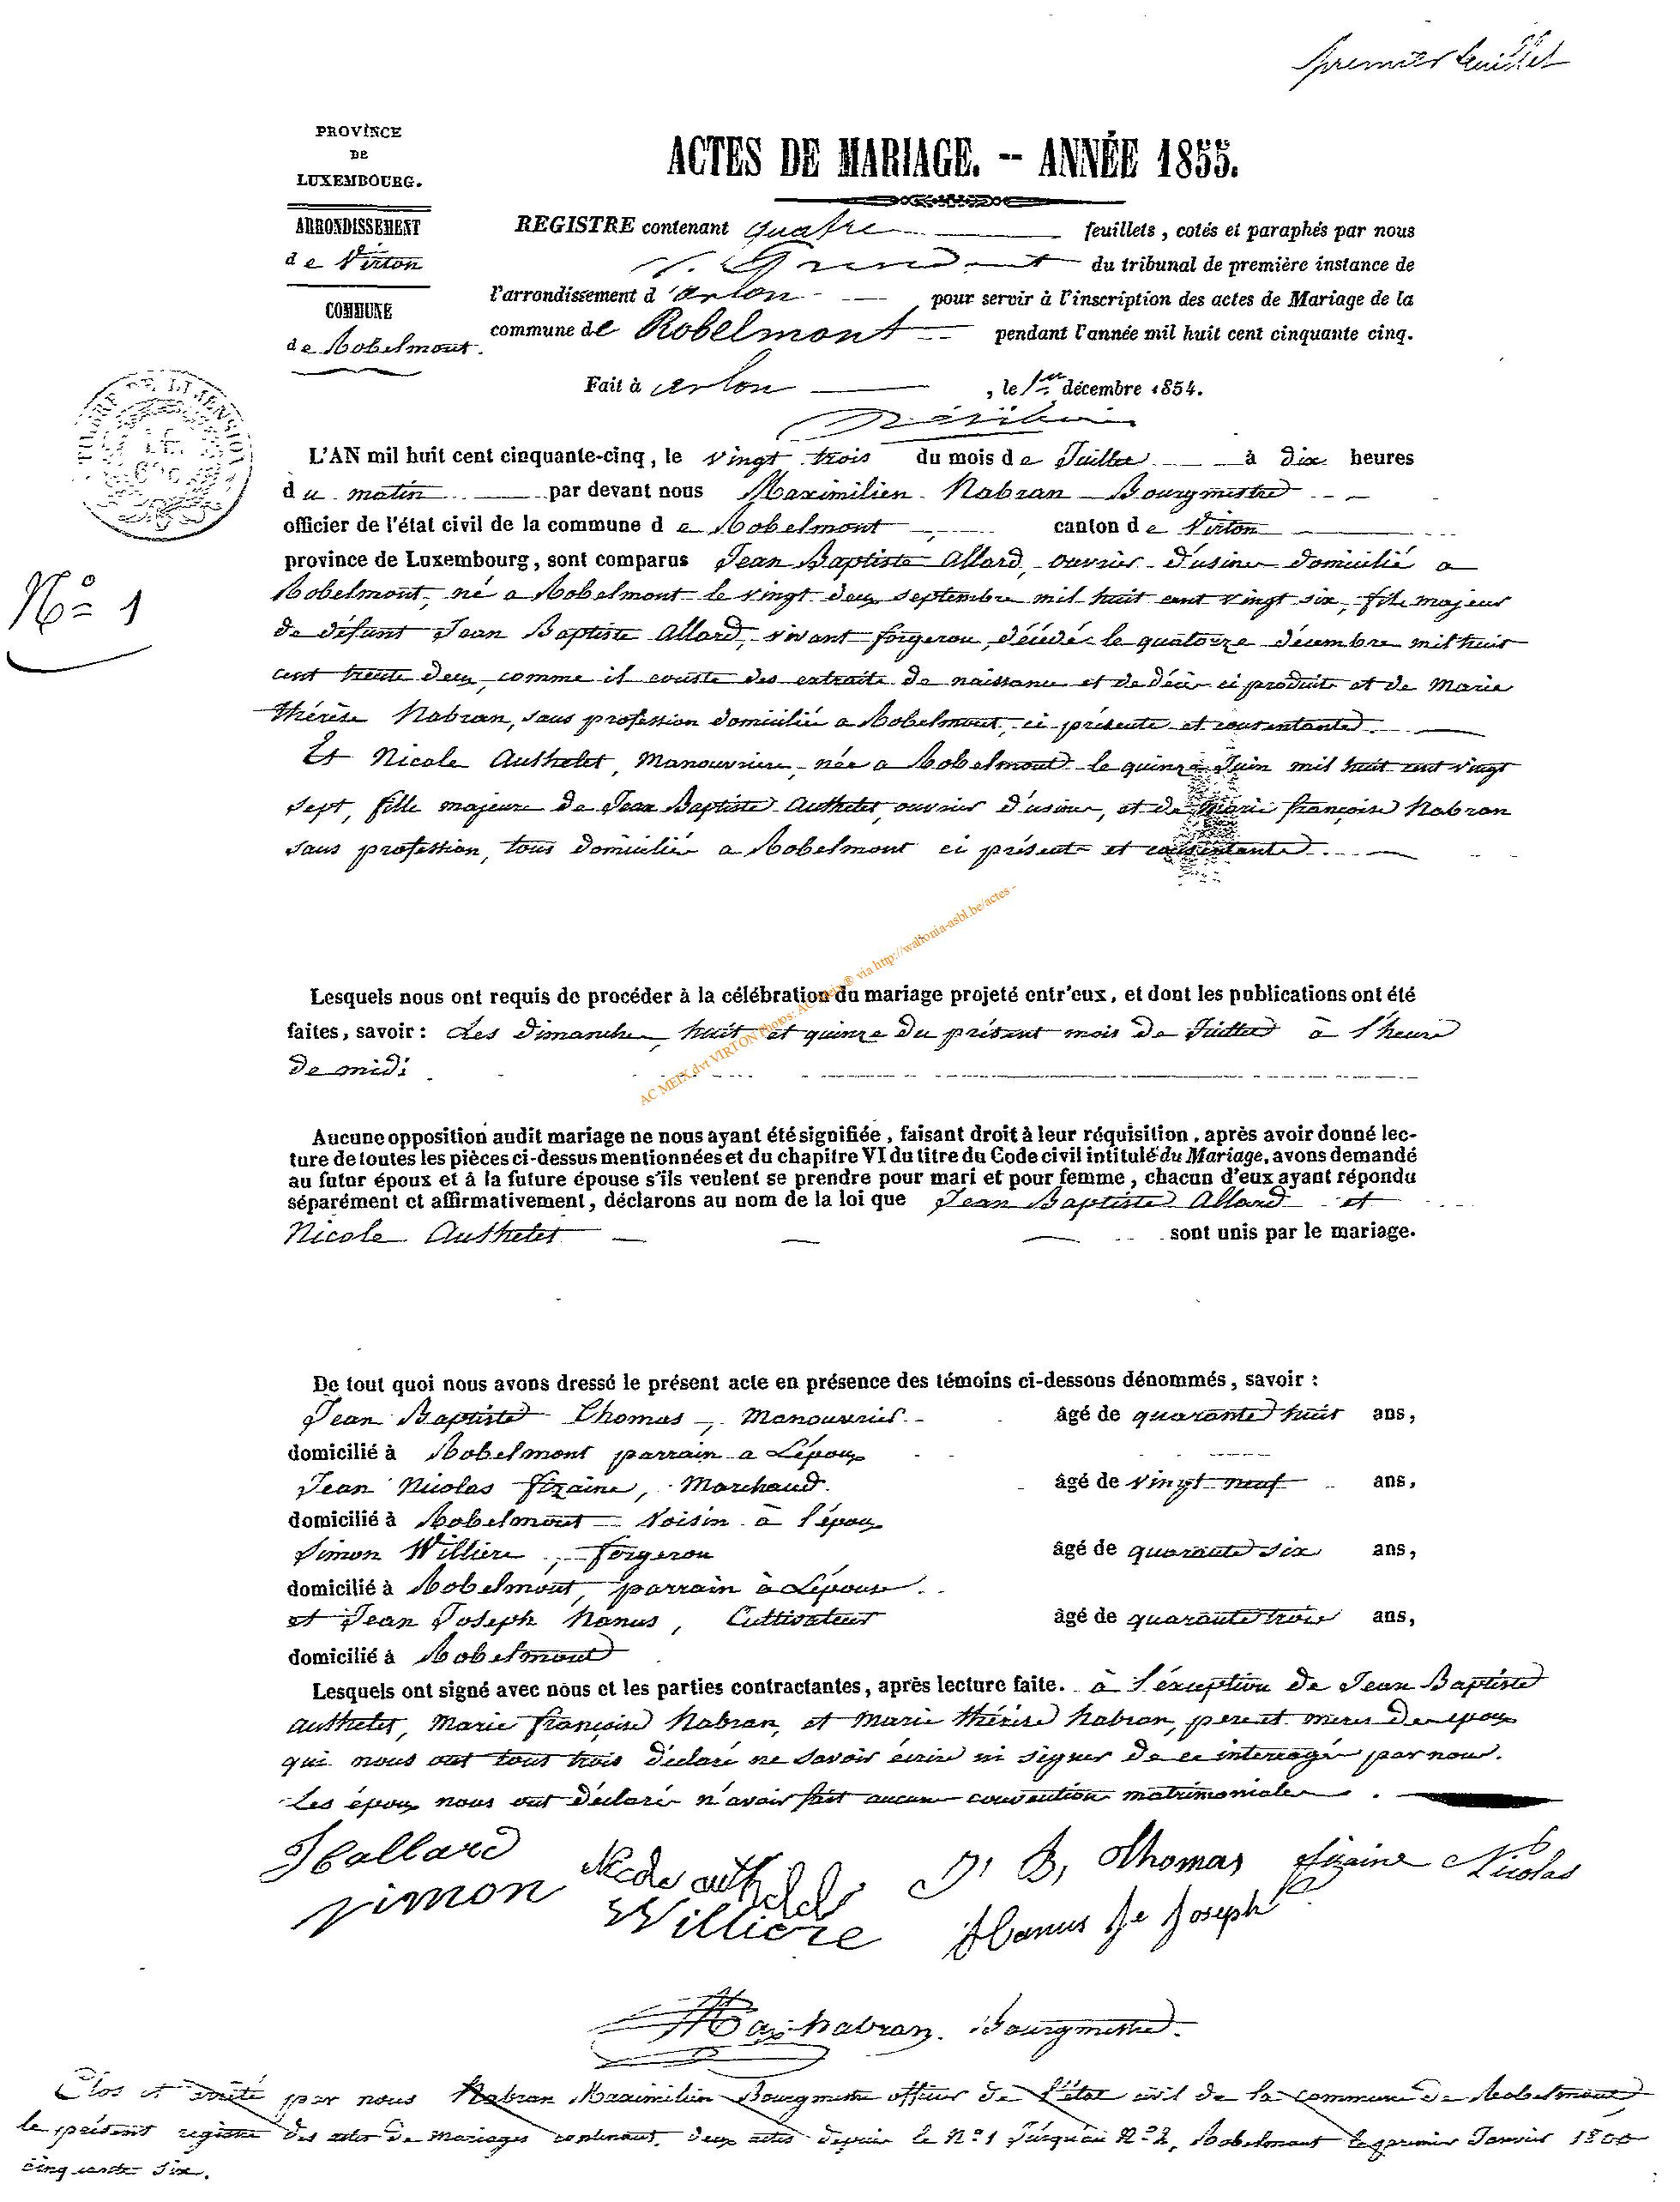 premier feuillet
PROVINCE
DE
LUXEMBOURG.
ARRONDISSEMENT
de Virton
COMMUNE
de Robelmont.
ACTES DE MARIAGE. -- ANNÉE 1855.
REGISTRE contenant quatre feuillets, cotés et paraphés par nous
du tribunal de première instance de
l'arrondissement d'Arlon pour servir à l'inscription des actes de Mariage de la
commune de Robelmont pendant l'année mil huit cent cinquante cinq.
Fait à arlon, le 1er décembre 1854.
N° 1
L'AN mil huit cent cinquante-cinq, le vingt trois du mois de Juillet à dix heures
du matin par devant nous Maximilien Nabran Bourgmestre
officier de l'état civil de la commune de Robelmont canton de Virton
province de Luxembourg, sont comparus Jean Baptiste Allard, ouvrier d'usine domicilié a
Robelmont, né a Robelmont le vingt deux septembre mil huit cent vingt six, fils majeur
de défunt Jean Baptiste Allard, vivant forgeron, décédé le quatorze décembre mil huit
cent trente deux, comme il conste des extraits de naissance et de décès ci produits et de Marie
thérèse Nabran, sans profession domiciliée a Robelmont, ci présente et consentante.
Et Nicole Authelet, Manouvriere, née a Robelmont le quinze Juin mil huit cent vingt
sept, fille majeure de Jean Baptiste Authelet, ouvrier d'usine, et de Marie françoise Nabran
sans profession, tous domiciliés a Robelmont ci présents et consentants.
AC MEIX dvt VIRTON Photos: AC Meix® via http://wallonia-asbl.be/actes -
Lesquels nous ont requis de procéder à la célébration du mariage projeté entr'eux, et dont les publications ont été
faites, savoir: Les dimanches, huit et quinze du présent mois de Juillet à l'heure
de midi
Aucune opposition audit mariage ne nous ayant été signifiée, faisant droit à leur réquisition, après avoir donné lec-
ture de toutes les pièces ci-dessus mentionnées et du chapitre VI du titre du Code civil intitulé du Mariage, avons demandé
au futur époux et à la future épouse s'ils veulent se prendre pour mari et pour femme, chacun d'eux ayant répondu
séparément et affirmativement, déclarons au nom de la loi que Jean Baptiste Allard et
Nicole Authelet sont unis par le mariage.
De tout quoi nous avons dressé le présent acte en présence des témoins ci-dessous dénommés, savoir:
Jean Baptiste Thomas, Manouvrier âgé de quarante huit ans,
domicilié à Robelmont parrain a L'époux
Jean Nicolas fizaine, Marchand. âgé de vingt neuf ans,
domicilié à Robelmont Voisin à l'époux
Simon Willière, forgeron âgé de quarante six ans,
domicilié à Robelmont, parrain à L'épouse
et Jean Joseph Hanus, Cultivateur âgé de quarante trois ans,
domicilié à Robelmont
Lesquels ont signé avec nous et les parties contractantes, après lecture faite. à l'éxception de Jean Baptiste
Authelet, Marie françoise Nabran, et Marie thérèse Nabran, pere et meres des époux
qui nous ont tous trois déclaré ne savoir écrire ni signer de ce interrogés par nous.
Les époux nous ont déclaré n'avoir fait aucune convention matrimoniale.
JBallard Nicole authelet J. B, thomas fizaine Nicolas
Simon Williere Hanus Jn Joseph
Max. Nabran. Bourgmestre.
Clos et arrêté par nous Nabran Maximilien Bourgmestre officier de l'état civil de la commune de Robelmont
le présent registre des actes de mariages contenant deux actes depuis le N° 1 Jusqu'au N° 2, Robelmont le premier Janvier 1800
cinquante six.